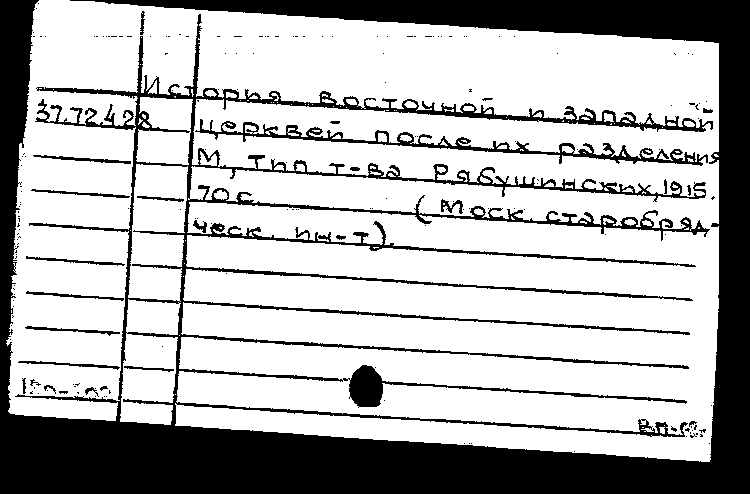 История восточной и западной
37.72.4.28. церквей после их разделения
М., Тип. т-ва Рябушинских, 1915.
70 с. (Моск. старобряд-
ческ. ин-т).